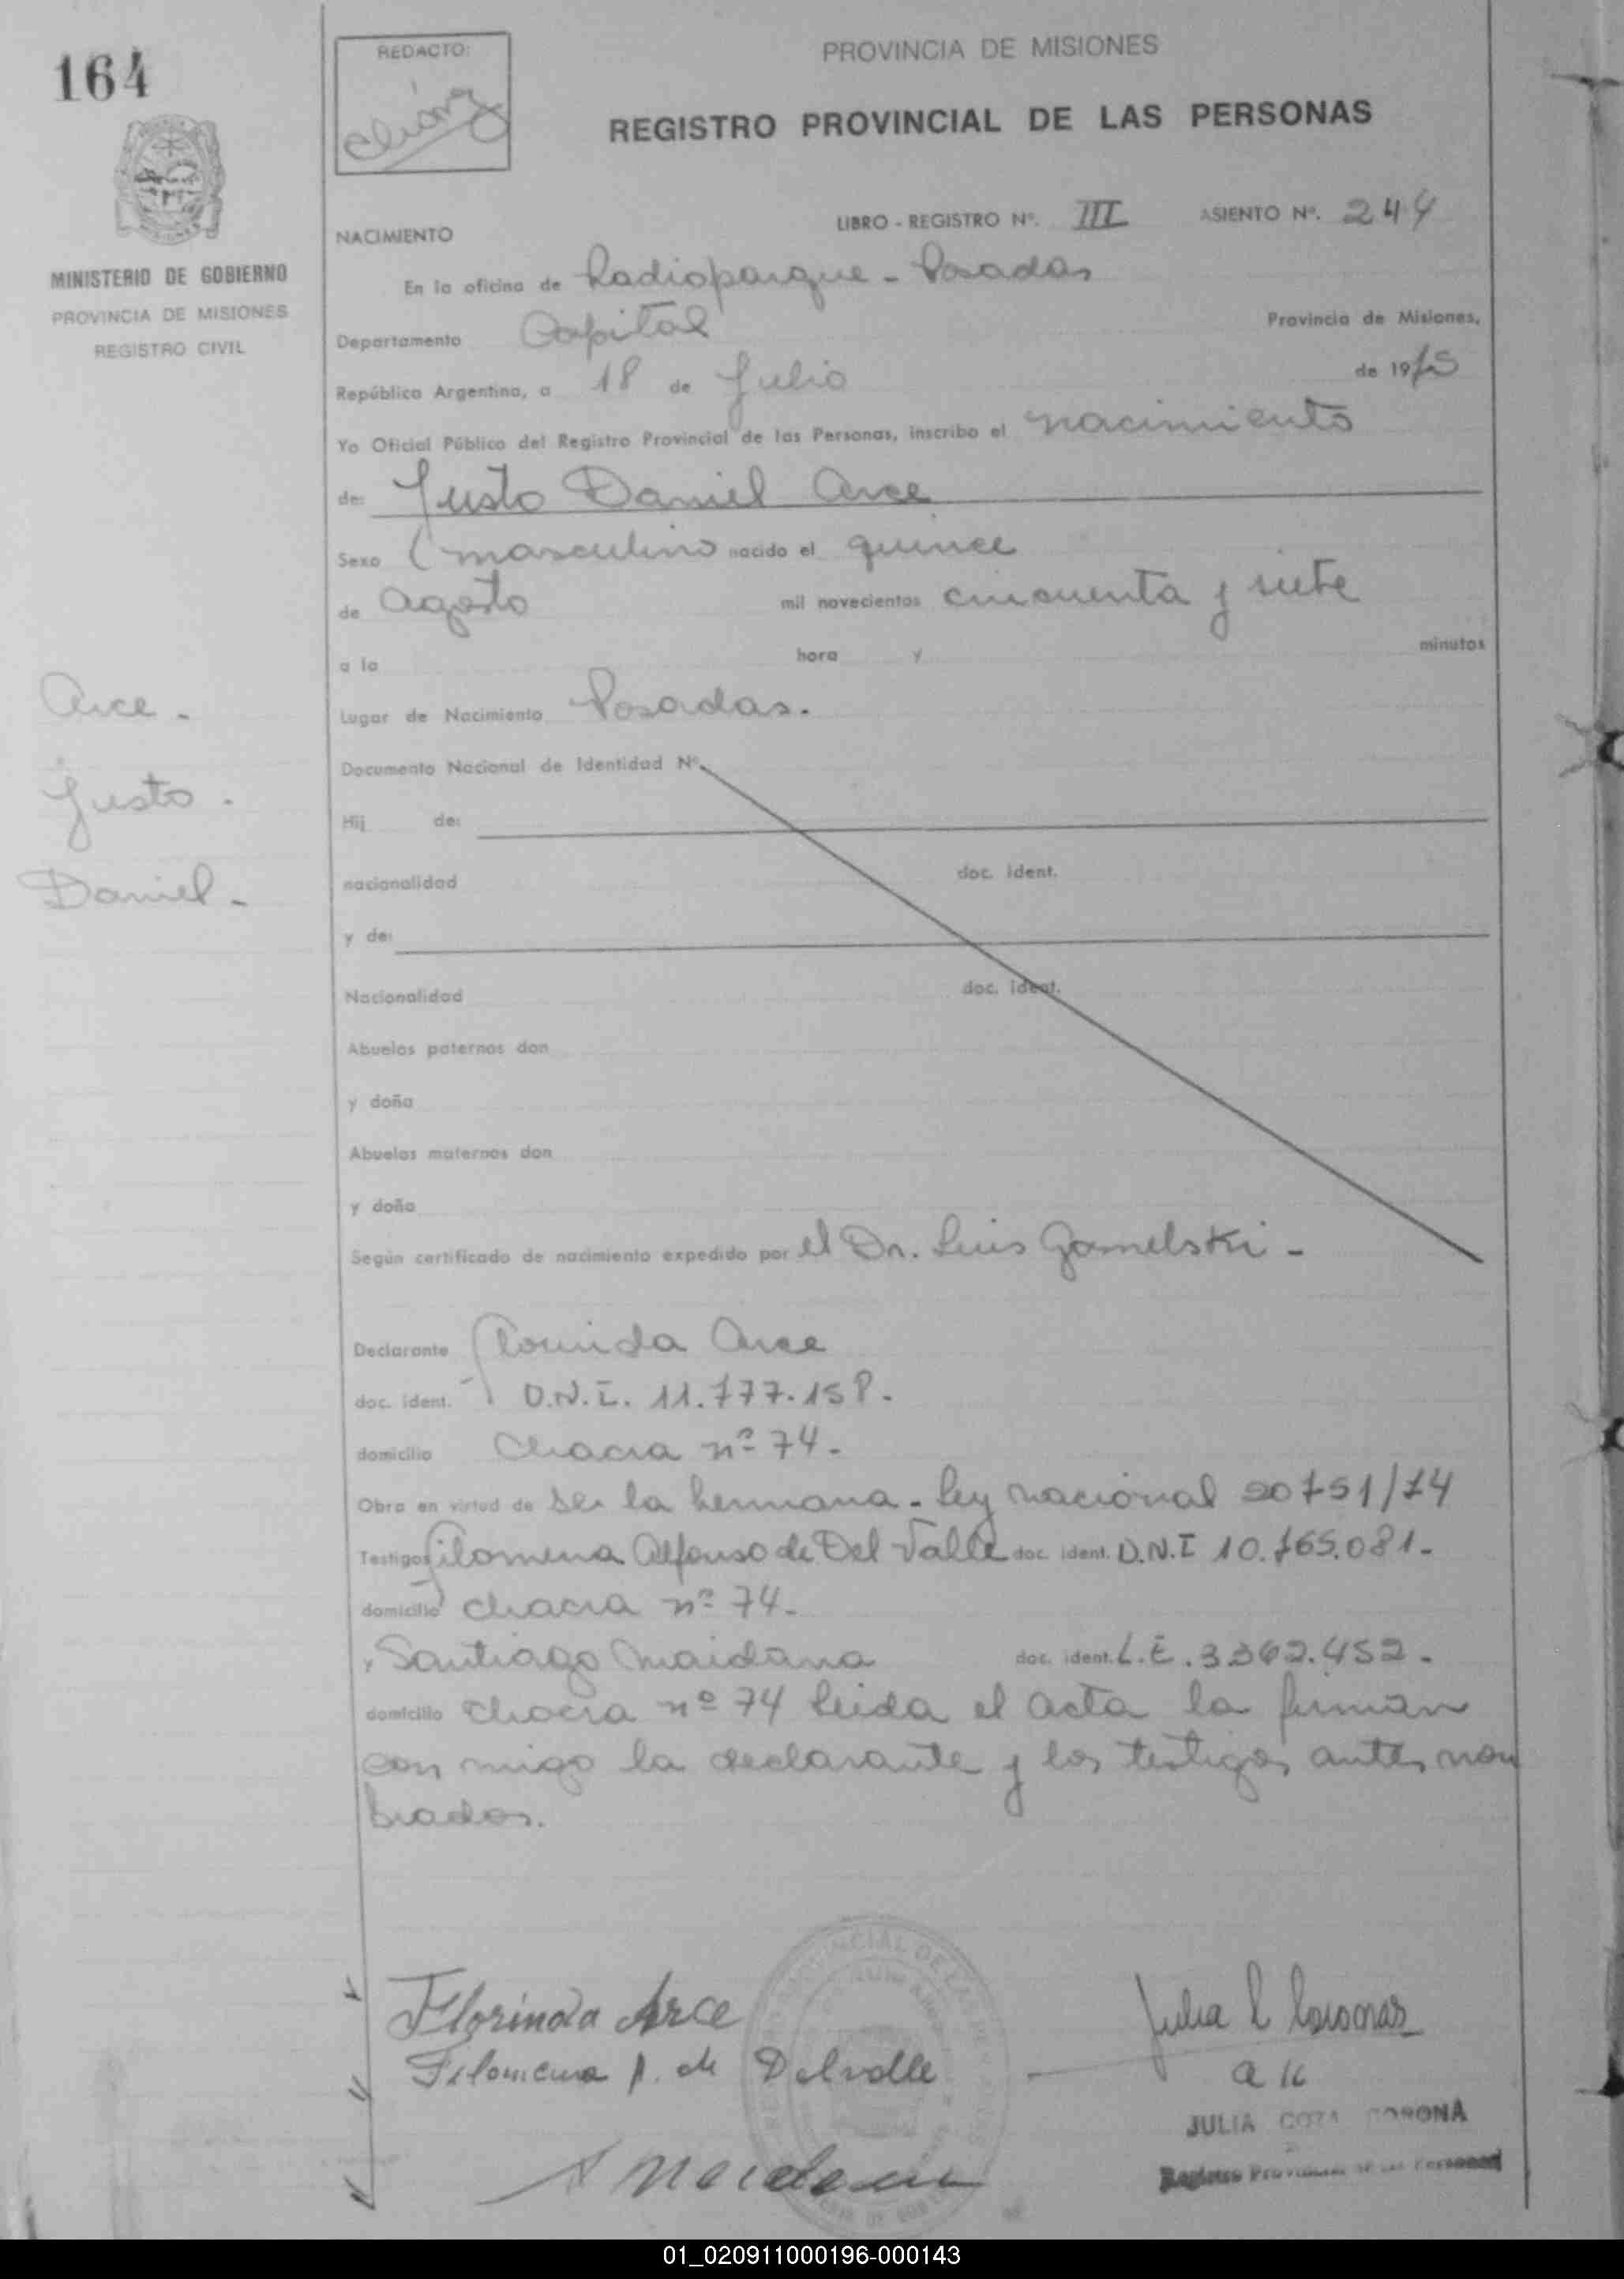 164
REDACTO:
PROVINCIA DE MISIONES
REGISTRO PROVINCIAL DE LAS PERSONAS
MINISTERIO DE GOBIERNO
PROVINCIA DE MISIONES
REGISTRO CIVIL
NACIMIENTO
LIBRO - REGISTRO Nº. III ASIENTO Nº. 244
En la oficina de Radioparque - Posadas
Departamento Capital Provincia de Misiones,
República Argentina, a 18 de Julio de 1975
Yo Oficial Público del Registro Provincial de las Personas, inscribo el nacimiento
de: Justo Daniel Arce
Sexo masculino nacido el quince
de agosto mil novecientos cincuenta y siete
a la hora y minutos
Arce -
Justo -
Daniel -
Lugar de Nacimiento Posadas.
Documento Nacional de Identidad Nº
Hij de:
nacionalidad doc. ident.
y de:
Nacionalidad doc. ident.
Abuelos paternos don
y doña
Abuelos maternos don
y doña
Según certificado de nacimiento expedido por el Dr. Luis Gamelski -
Declarante Florinda Arce
doc. ident. D.N.I. 11.777.158.
domicilio Chacra nº 74.
Obra en virtud de ser la hermana - ley nacional 20751/74
Testigos Filomena Alfonso de Del Valle doc. ident. D.N.I 10.765.081.
domicilio chacra nº 74.
y Santiago Maidana doc. ident. L.E. 3362.452.
domicilio chacra nº 74 leida el acta la firman
con migo la declarante y los testigos antes nom
brados.
Florinda Arce
Filomena A. de Delvalle
JULIA CORONA
Registro Provincial de las Personas
01_020911000196-000143